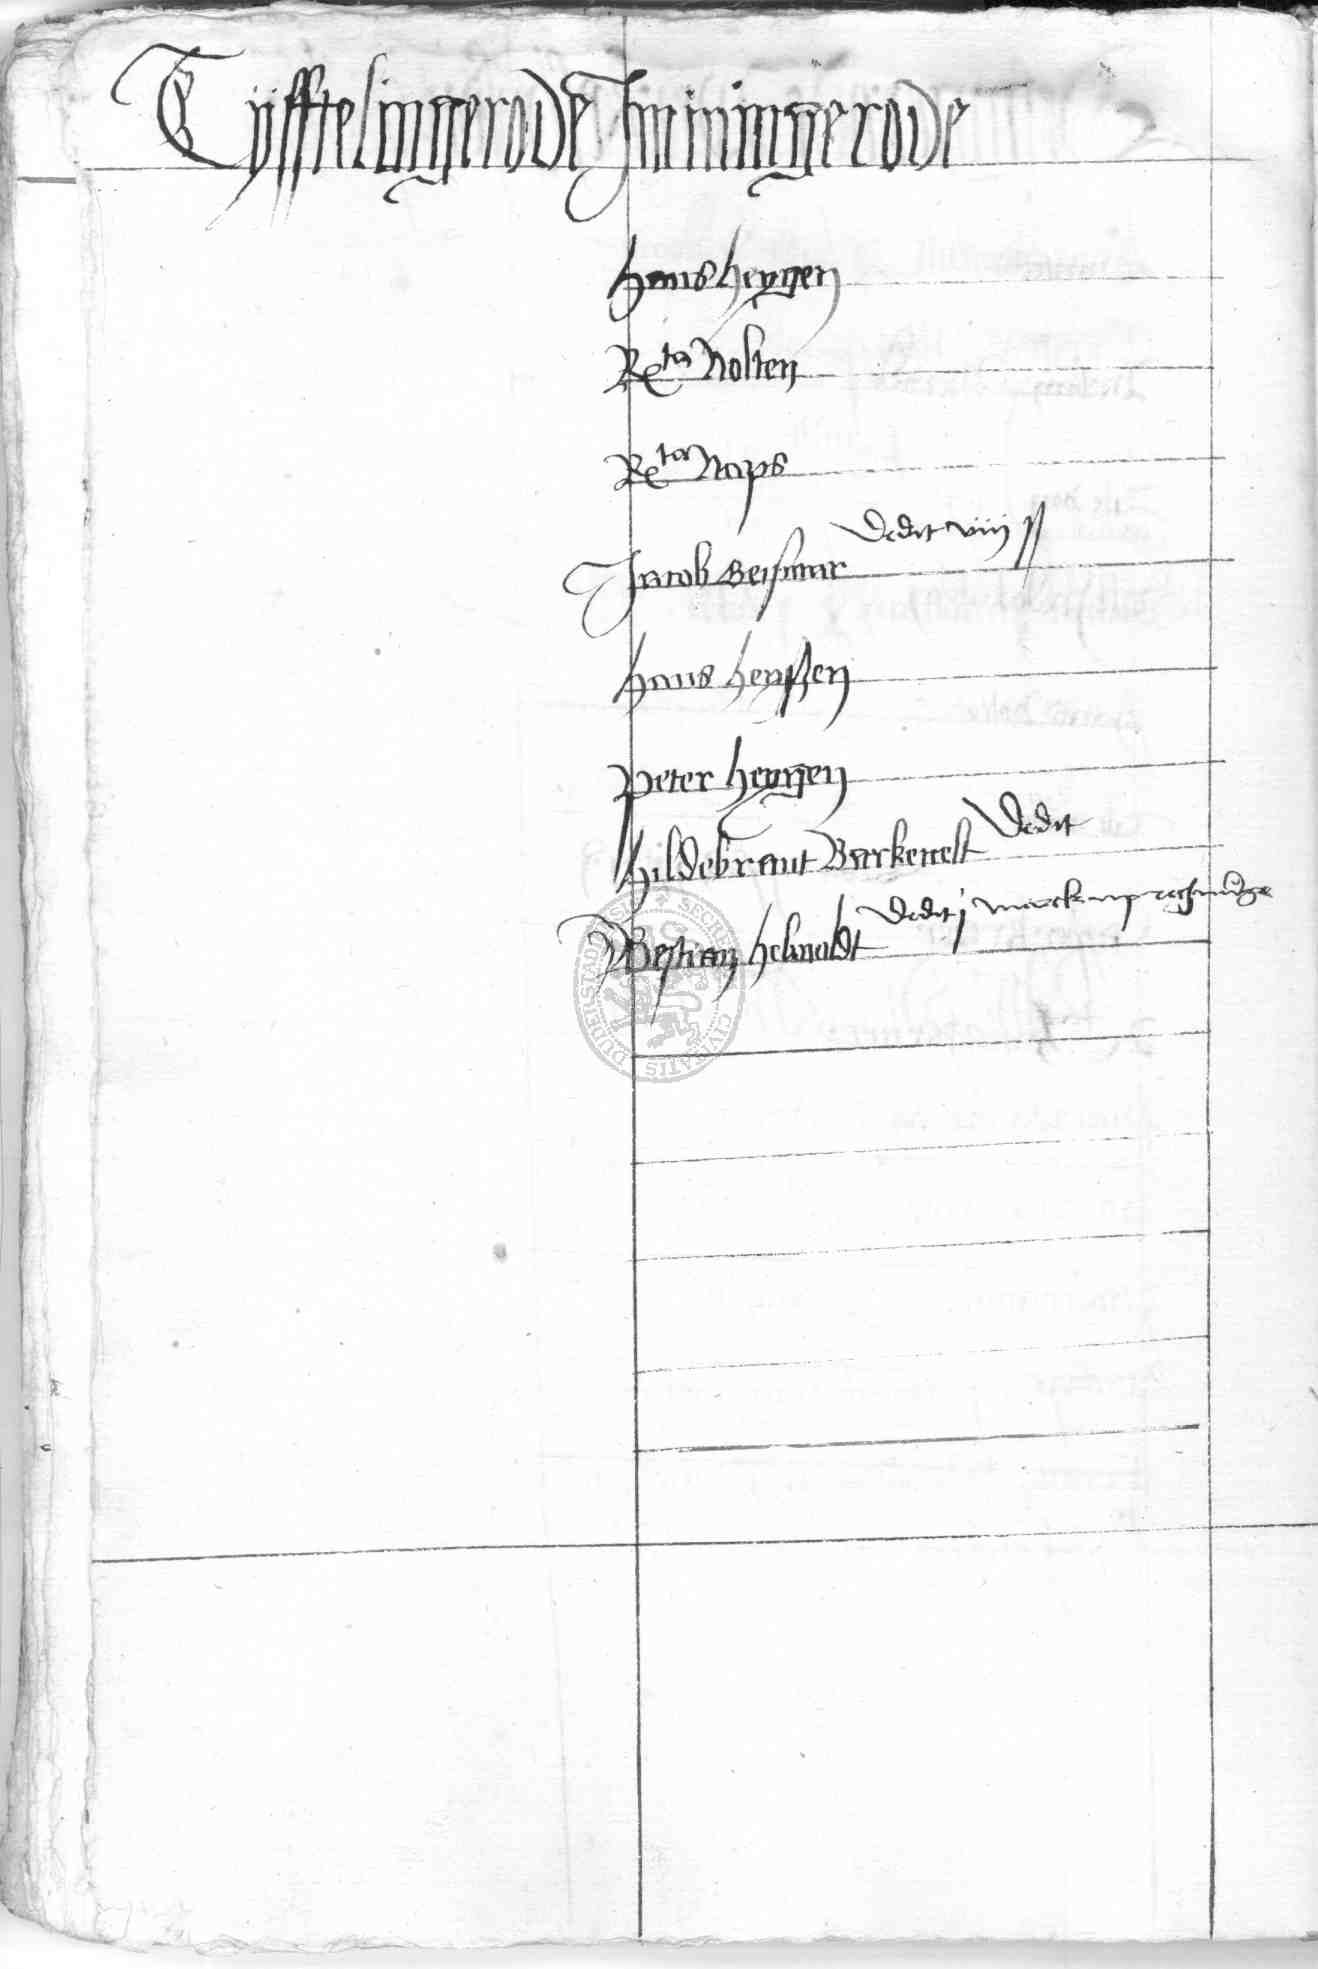 Tÿfftelingerode Jminingerode
Hans Heygen
Rcta Nolten
Rcta Naps
Jacob Beismar dedit viiij ß
Hans Henßen
Peter Heygen
Hildebrant Barkenelt dedit
Bestian Hebnoldt dedit j marck up
SECRE CIVITATIS DUDERSTAD